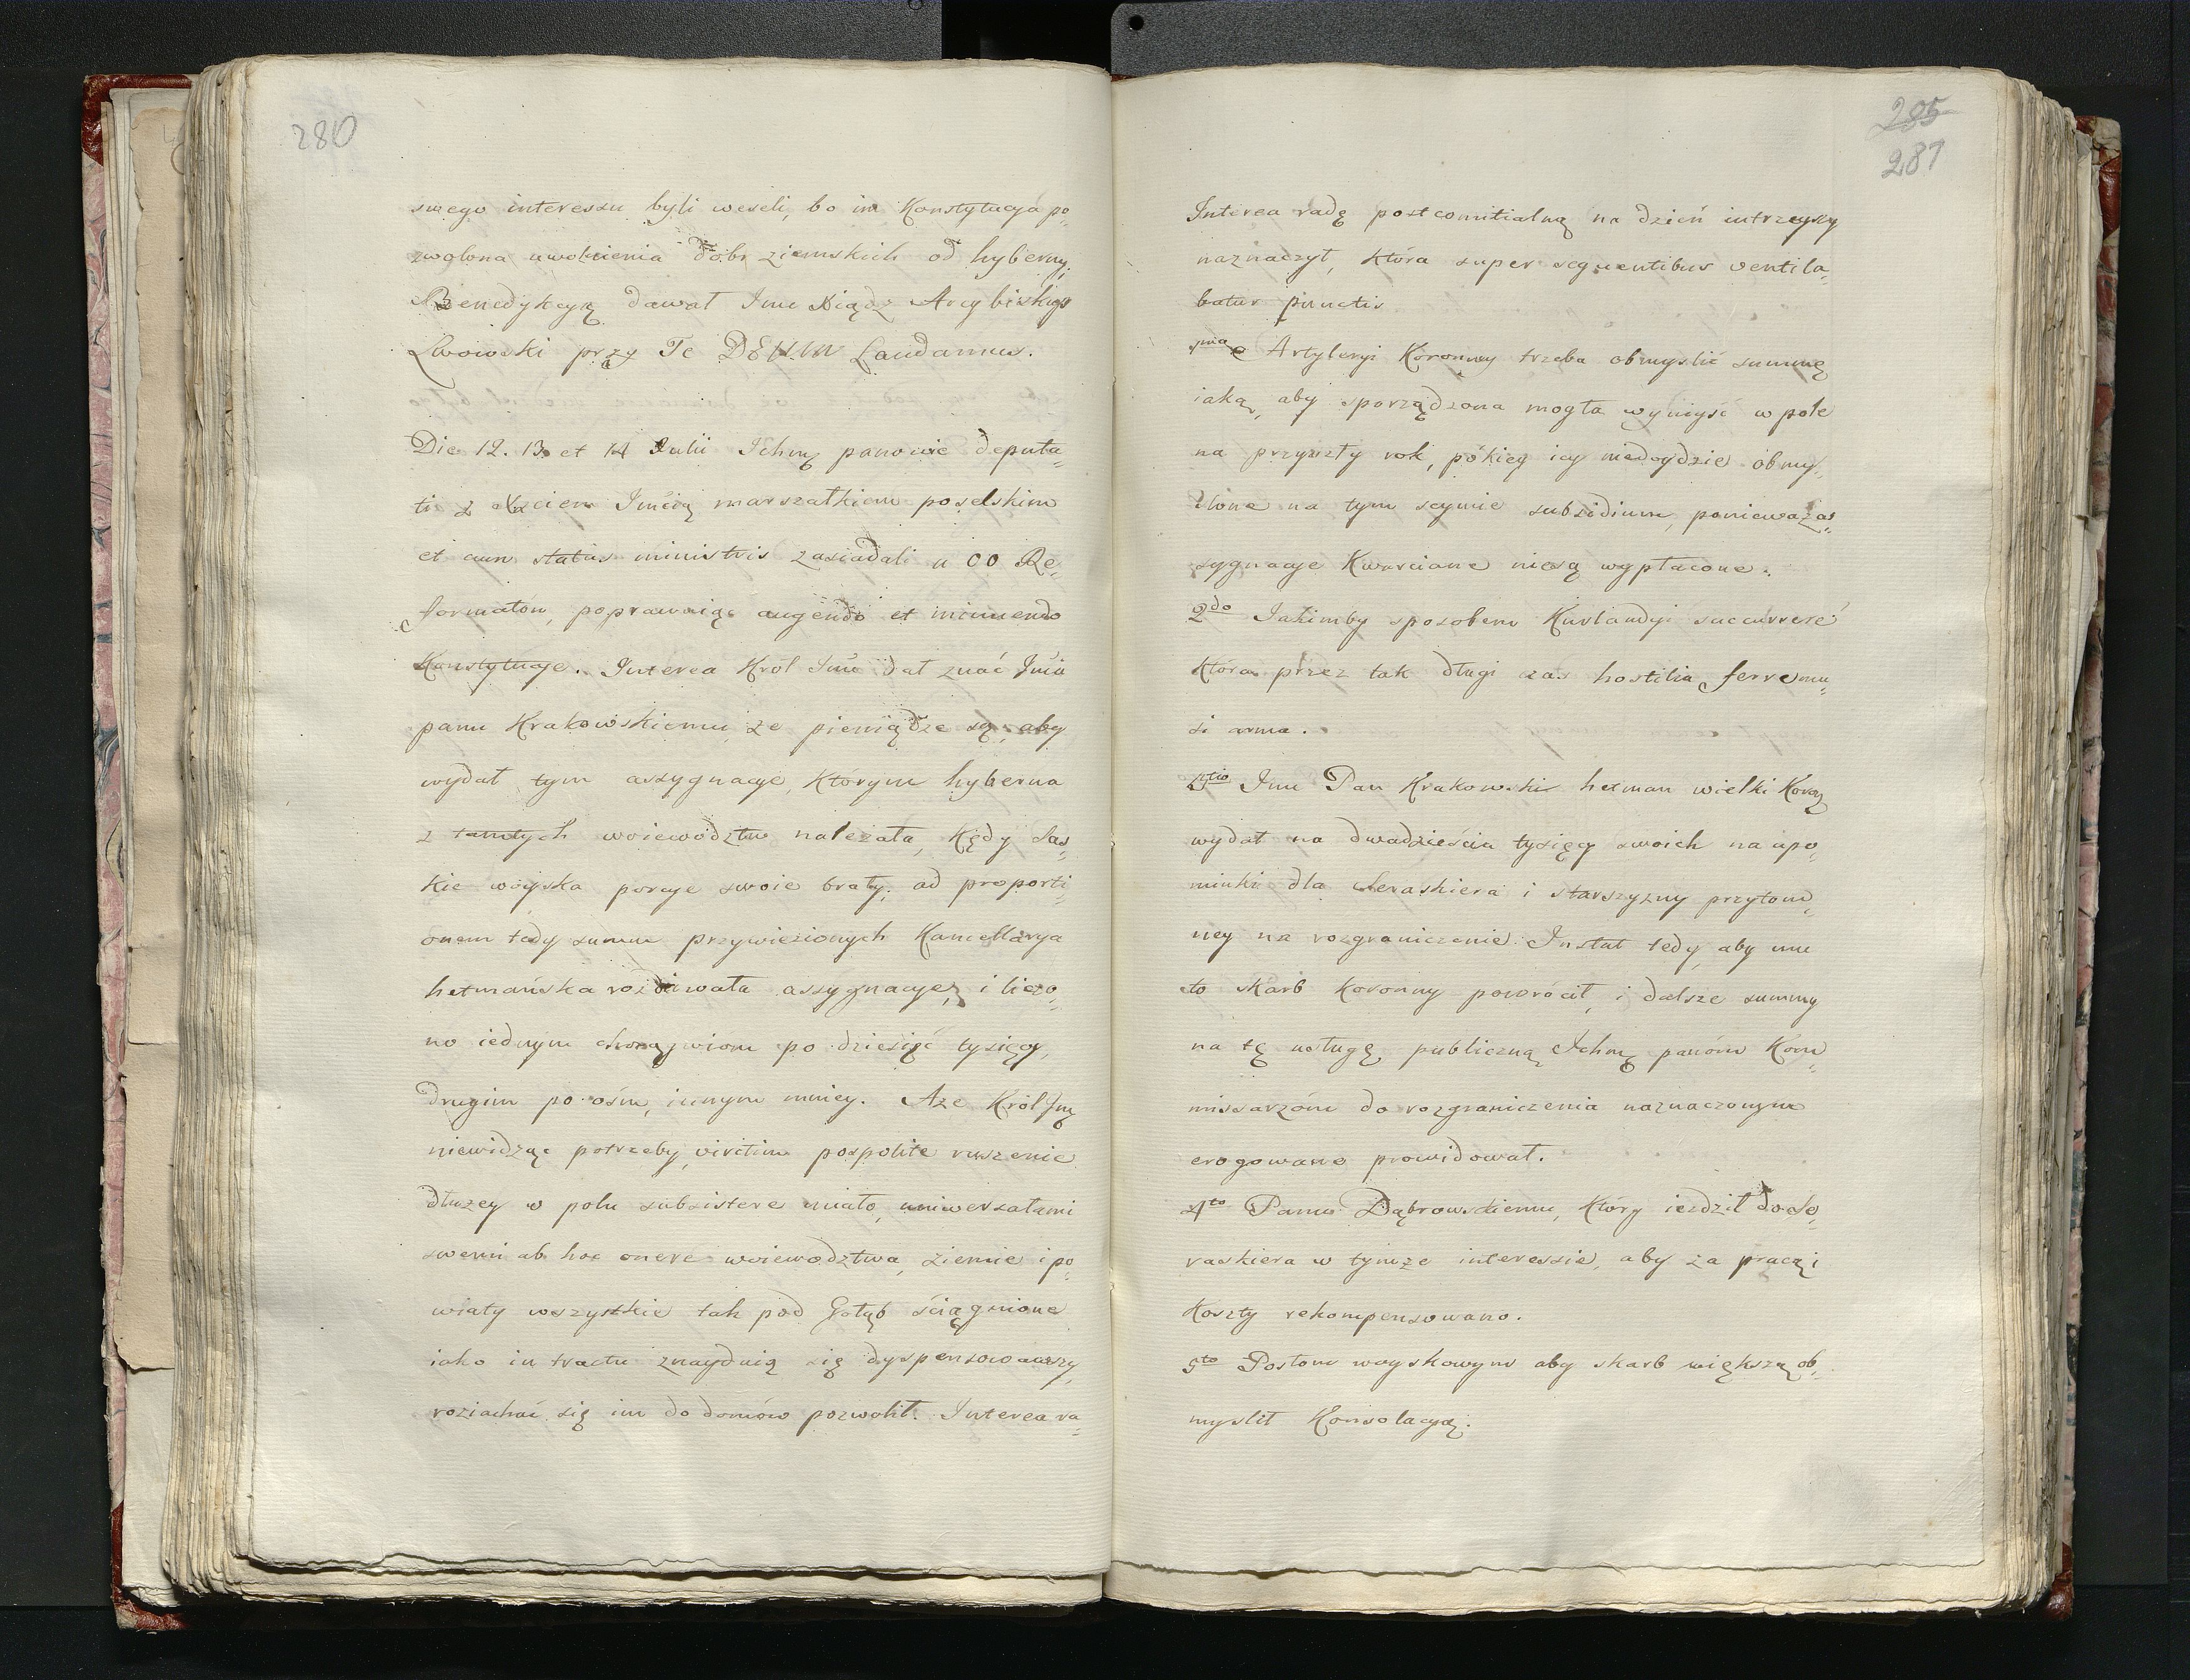 280
swego interessu byli weseli, bo im Konstytucya po„
zwolona uwolnienia dobr ziemskich od hyberny.
Benedykcyą dawał Imc Xiądz Arcybiskup
Lwowski przy Te DEUM Laudamus.
Die 12. 13. et 14 Julii Ichmę panowie deputa„
ti z Xzciem Imcią marszałkiem poselskim
et cum status ministris zasiadali u OO Re„
formatow, poprawuiąc augendo et minuendo
Konstytucye. Interea Krol Imc dał znać Imci
panu Krakowskiemu że pieniądze są, aby
wydał tym assygnacye, którym hyberna
z tamtych woiewodztw należała, kędy Sas„
kie woyska porcye swoie brały; ad proporti„
onem tedy summ przywiezionych Kancellarya
hetmańska rozdawała assygnacye, i liczo„
no iednym chorągwiom po dziesięć tysięcy,
drugim po ośm, innym mniey. Aże Król Imę
niewidząc potrzeby, viritim pospolite ruszenie
dłużey w polu subsistere miało, uniwersałami
swemi ab hoc onere woiewodztwa, ziemie i po„
wiaty wszystkie tak pod Gołąb ściągnione
iako in tractu znayduią się dyspensowawszy,
roziachać się im do domów pozwolił. Interea ra„
285
287
Interea radę postcomitialną na dzień iutrzeyszy
naznaczył, która super sequentibus ventila„
batur punctis
1mo Artyleryi Koronney trzeba obmyślić summę
iaką, aby sporządzona mogła wyniyść w pole
na przyszły rok, pókieg iey niedoydzie obmy„
ślone na tym seymie subsidium, ponieważ as„
sygnacye Kwarciane niesą wypłacone.
2do Iakimby sposobem Kurlandyi succurrere
która przez tak długi czas hostilia ferre mu„
si arma.
3tio Imc Pan Krakowski hetman wielki Korą
wydał na dwadzieścia tysięcy swoich na upo„
minki dla Seraskiera i starszyzny przytom„
ney na rozgraniczenie. Instat tedy, aby mu
to skarb koronny powrócił, i dalsze summy
na tę usługę publiczną Ichmę panóm Kom„
missarzóm do rozgraniczenia naznaczonym
erogowane prowidował.
4to Panu Dąbrowskiemu, który iezdził do Se„
raskiera w tymże interessie, aby za pracę i
koszty rekompensowano.
5to Posłom woyskowym aby skarb większą ob„
myslił Konsolacyą.